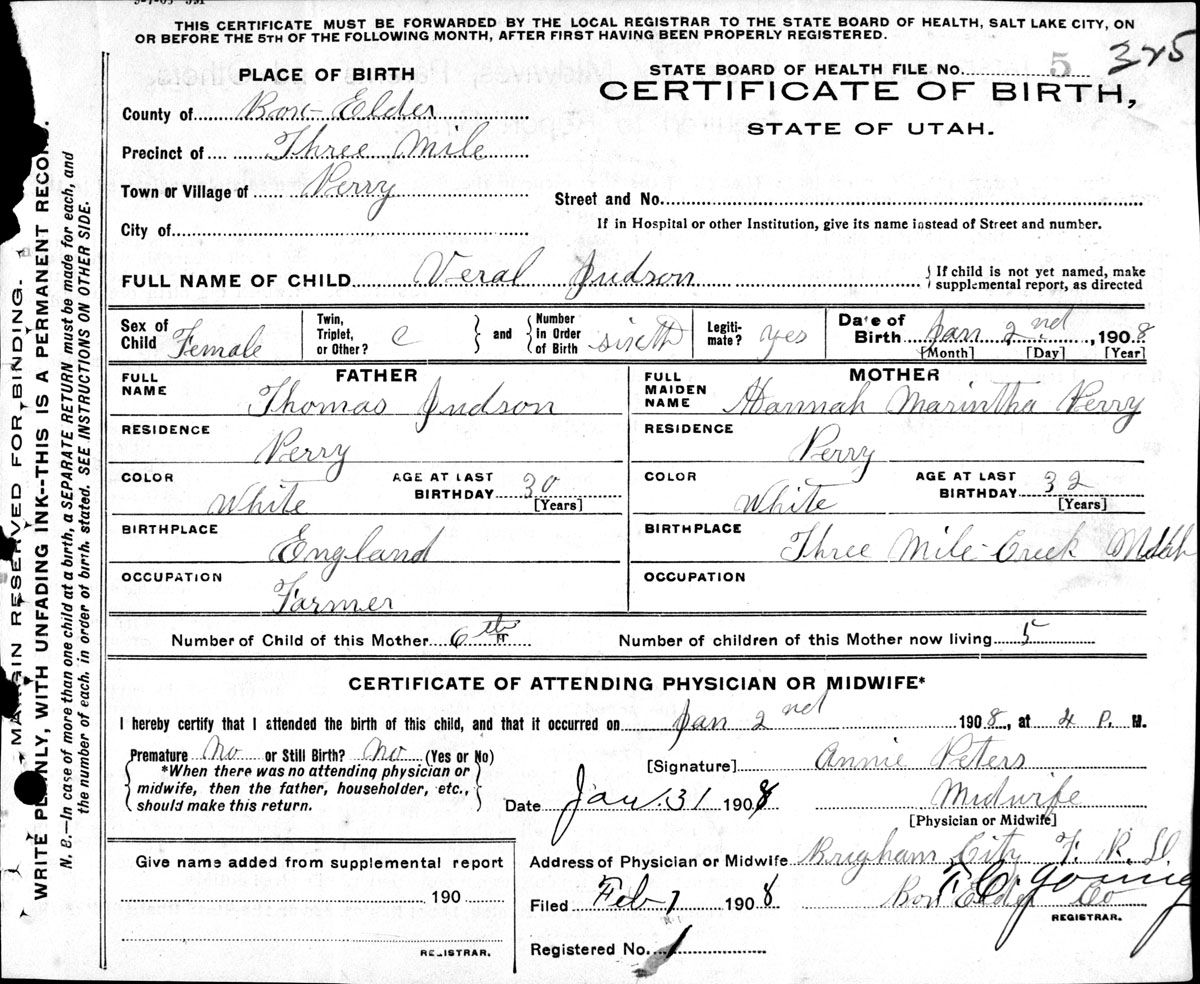 THIS CERTIFICATE MUST BE FORWARDED BY THE LOCAL REGISTRAR TO THE STATE BOARD OF HEALTH, SALT LAKE CITY, ON
OR BEFORE THE 5TH OF THE FOLLOWING MONTH, AFTER FIRST HAVING BEEN PROPERLY REGISTERED.
PLACE OF BIRTH
STATE BOARD OF HEALTH FILE No. 5 325
CERTIFICATE OF BIRTH,
STATE OF UTAH.
County of Box-Elder
Precinct of Three Mile
Town or Village of Perry
Street and No.
City of
If in Hospital or other Institution, give its name instead of Street and number.
FULL NAME OF CHILD Veral Judson
If child is not yet named, make
supplemental report, as directed
Sex of Child Female
Twin, Triplet, or Other? C
and Number in Order of Birth sixth
Legitimate? yes
Date of Birth Jan 2nd, 1908
[Month] [Day] [Year]
FATHER
FULL NAME Thomas Judson
RESIDENCE Perry
COLOR White
AGE AT LAST BIRTHDAY 30
[Years]
BIRTHPLACE England
OCCUPATION Farmer
MOTHER
FULL MAIDEN NAME Hannah Marintha Perry
RESIDENCE Perry
COLOR White
AGE AT LAST BIRTHDAY 32
[Years]
BIRTHPLACE Three Mile-Creek Utah
OCCUPATION
Number of Child of this Mother 6th
Number of children of this Mother now living 5
CERTIFICATE OF ATTENDING PHYSICIAN OR MIDWIFE*
I hereby certify that I attended the birth of this child, and that it occurred on Jan 2nd 1908, at 4 P. M.
Premature No or Still Birth? No (Yes or No)
*When there was no attending physician or
midwife, then the father, householder, etc.,
should make this return.
[Signature] Annie Peters
Date Jan. 31 1908
Midwife
[Physician or Midwife]
Give name added from supplemental report
190
REGISTRAR.
Address of Physician or Midwife Brigham City F. R. D.
Box Elder Co
Filed Feb 7 1908
F C Young
REGISTRAR.
Registered No. 1
MARGIN RESERVED FOR BINDING.
WRITE PLAINLY, WITH UNFADING INK--THIS IS A PERMANENT RECORD.
N. B.—In case of more than one child at a birth, a SEPARATE RETURN must be made for each, and
the number of each, in order of birth, stated. SEE INSTRUCTIONS ON OTHER SIDE.